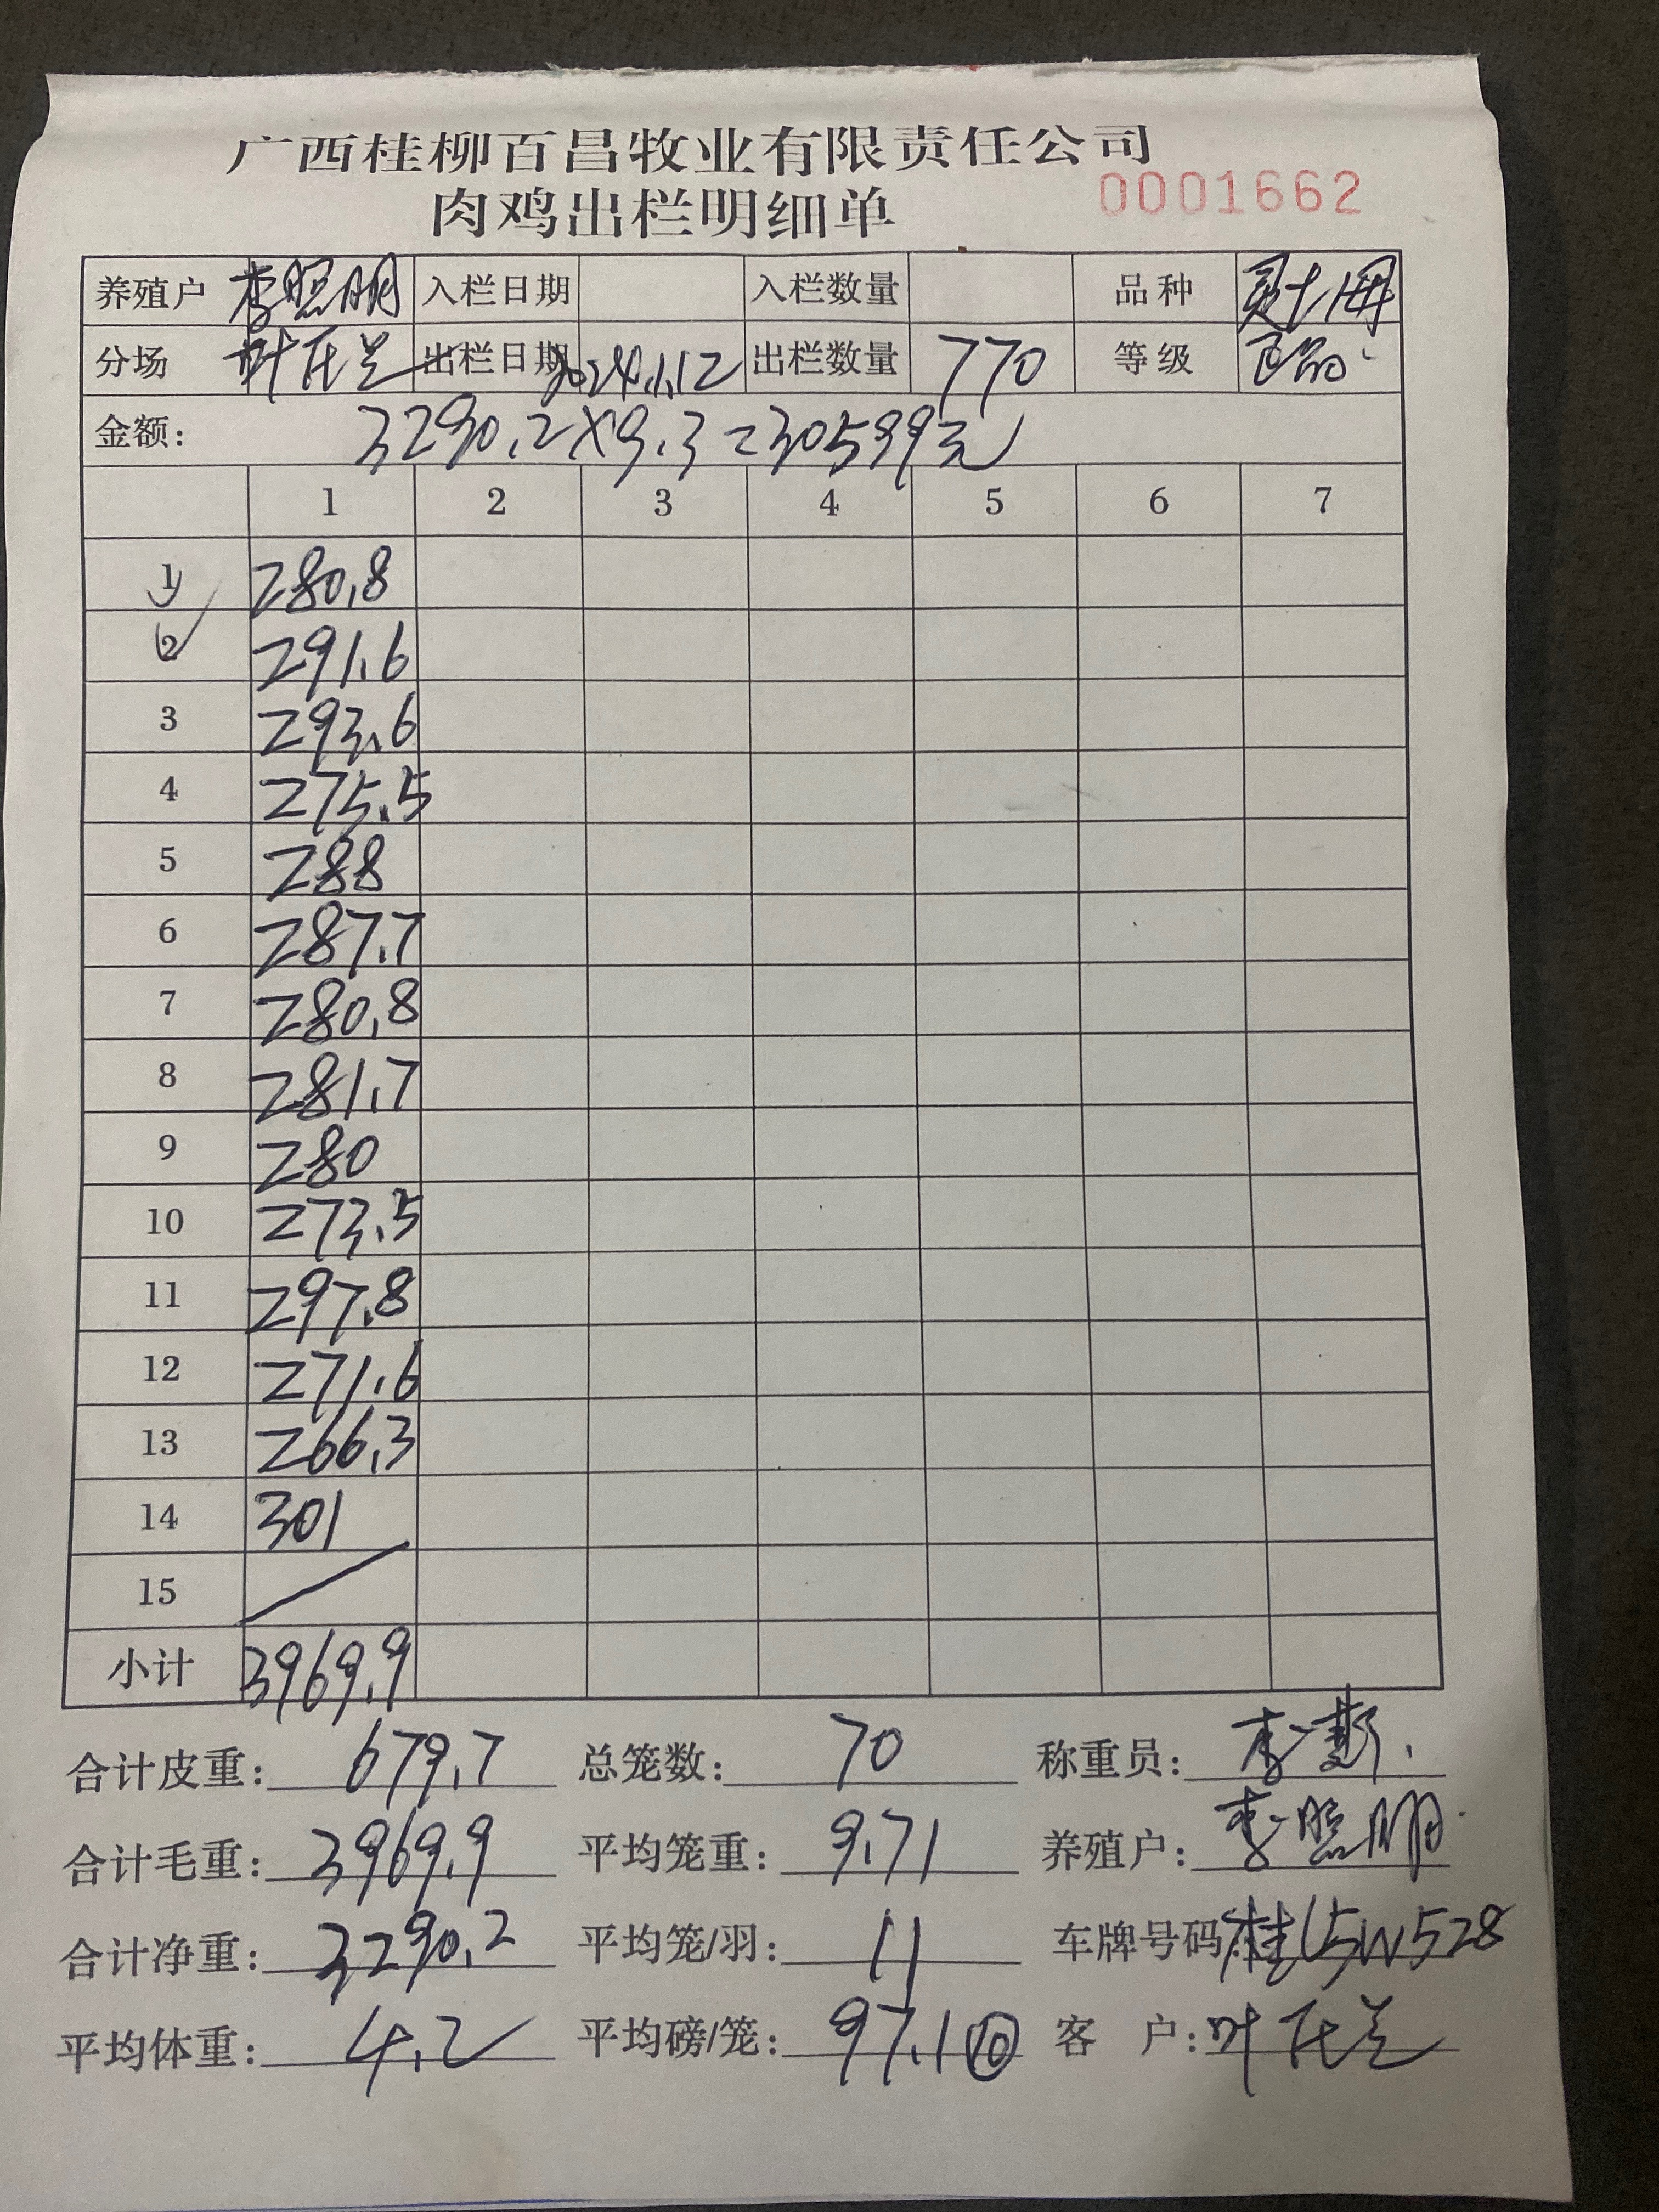 广西桂柳百昌牧业有限责任公司
肉鸡出栏明细单 0001662
养殖户 李照明 入栏日期 入栏数量 品种
分场 叶 出栏日期 2024.1.12 出栏数量 770 等级
金额: 3290.2×9.3=30599元
1 2 3 4 5 6 7
1 280.8
2 291.6
3 293.6
4 275.5
5 288
6 287.7
7 280.8
8 281.7
9 280
10 273.5
11 297.8
12 271.6
13 266.3
14 301
15
小计 3969.9
合计皮重: 679.7 总笼数: 70 称重员: 李
合计毛重: 3969.9 平均笼重: 9.71 养殖户: 李照明
合计净重: 3290.2 平均笼/羽: 11 车牌号码: 桂 5W528
平均体重: 4.2 平均磅/笼: 97.1 ⑩ 客 户: 叶